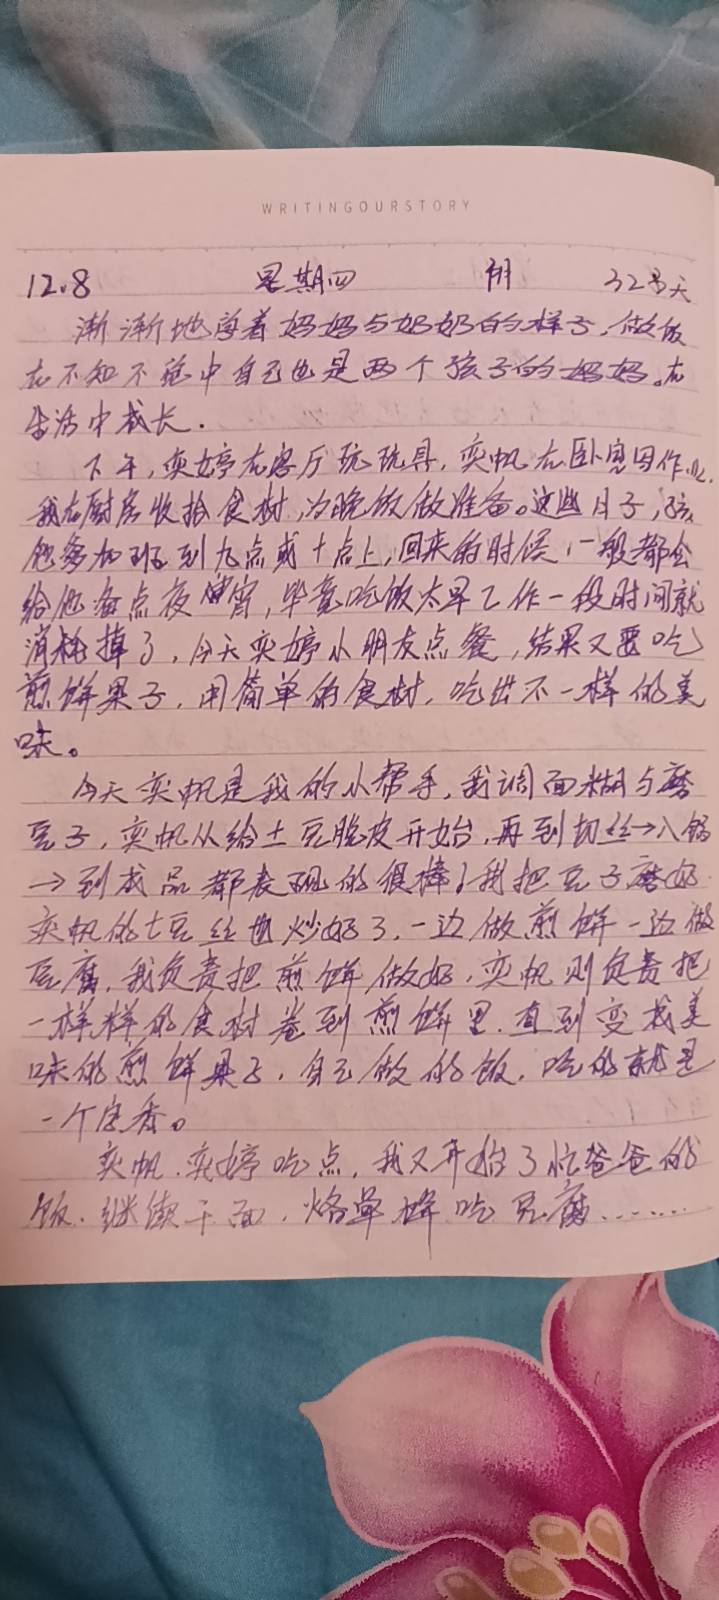 WRITINGOURSTORY
12.8 星期四 阴 32天
渐渐地学着妈妈与奶奶的样子,做饭
在不知不觉中自己也是两个孩子的妈妈。在
生活中成长.
下午,奕婷在客厅玩玩具,奕帆在卧室写作业.
我在厨房收拾食材,为晚饭做准备。这些日子,孩
他爸加班到九点或十点上,回来的时候,一般都会
给他备点夜宵,毕竟吃饭太早工作一段时间就
消耗掉了,今天奕婷小朋友点餐,结果又要吃
煎饼果子,用简单的食材,吃出不一样的美
味。
今天奕帆是我的小帮手,我调面糊与磨
豆子,奕帆从给土豆脱皮开始,再到切丝→入锅
→到成品都表现的很棒!我把豆子磨好
奕帆的土豆丝也炒好了,一边做煎饼一边做
豆腐,我负责把煎饼做好,奕帆则负责把
一样样的食材卷到煎饼里.直到变成美
味的煎饼果子,自己做的饭,吃的就是
一个字香。
奕帆.奕婷吃点,我又开始了忙爸爸的
饭.继续干面,烙单饼吃豆腐......